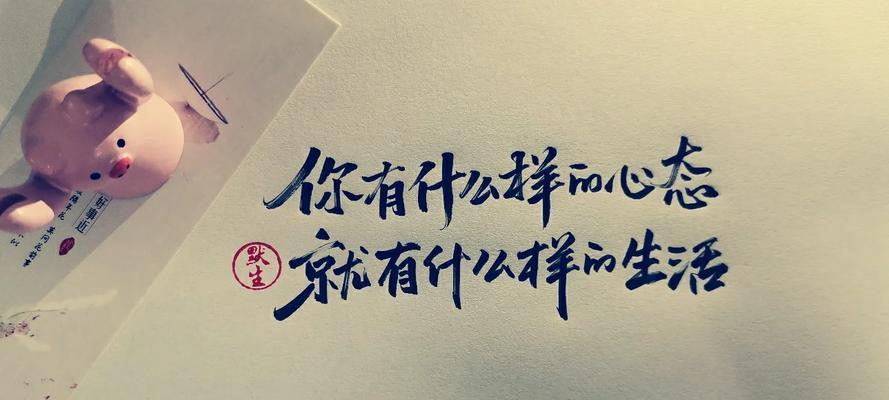 你有什么样的心态
就有什么样的生活
默生
好事近